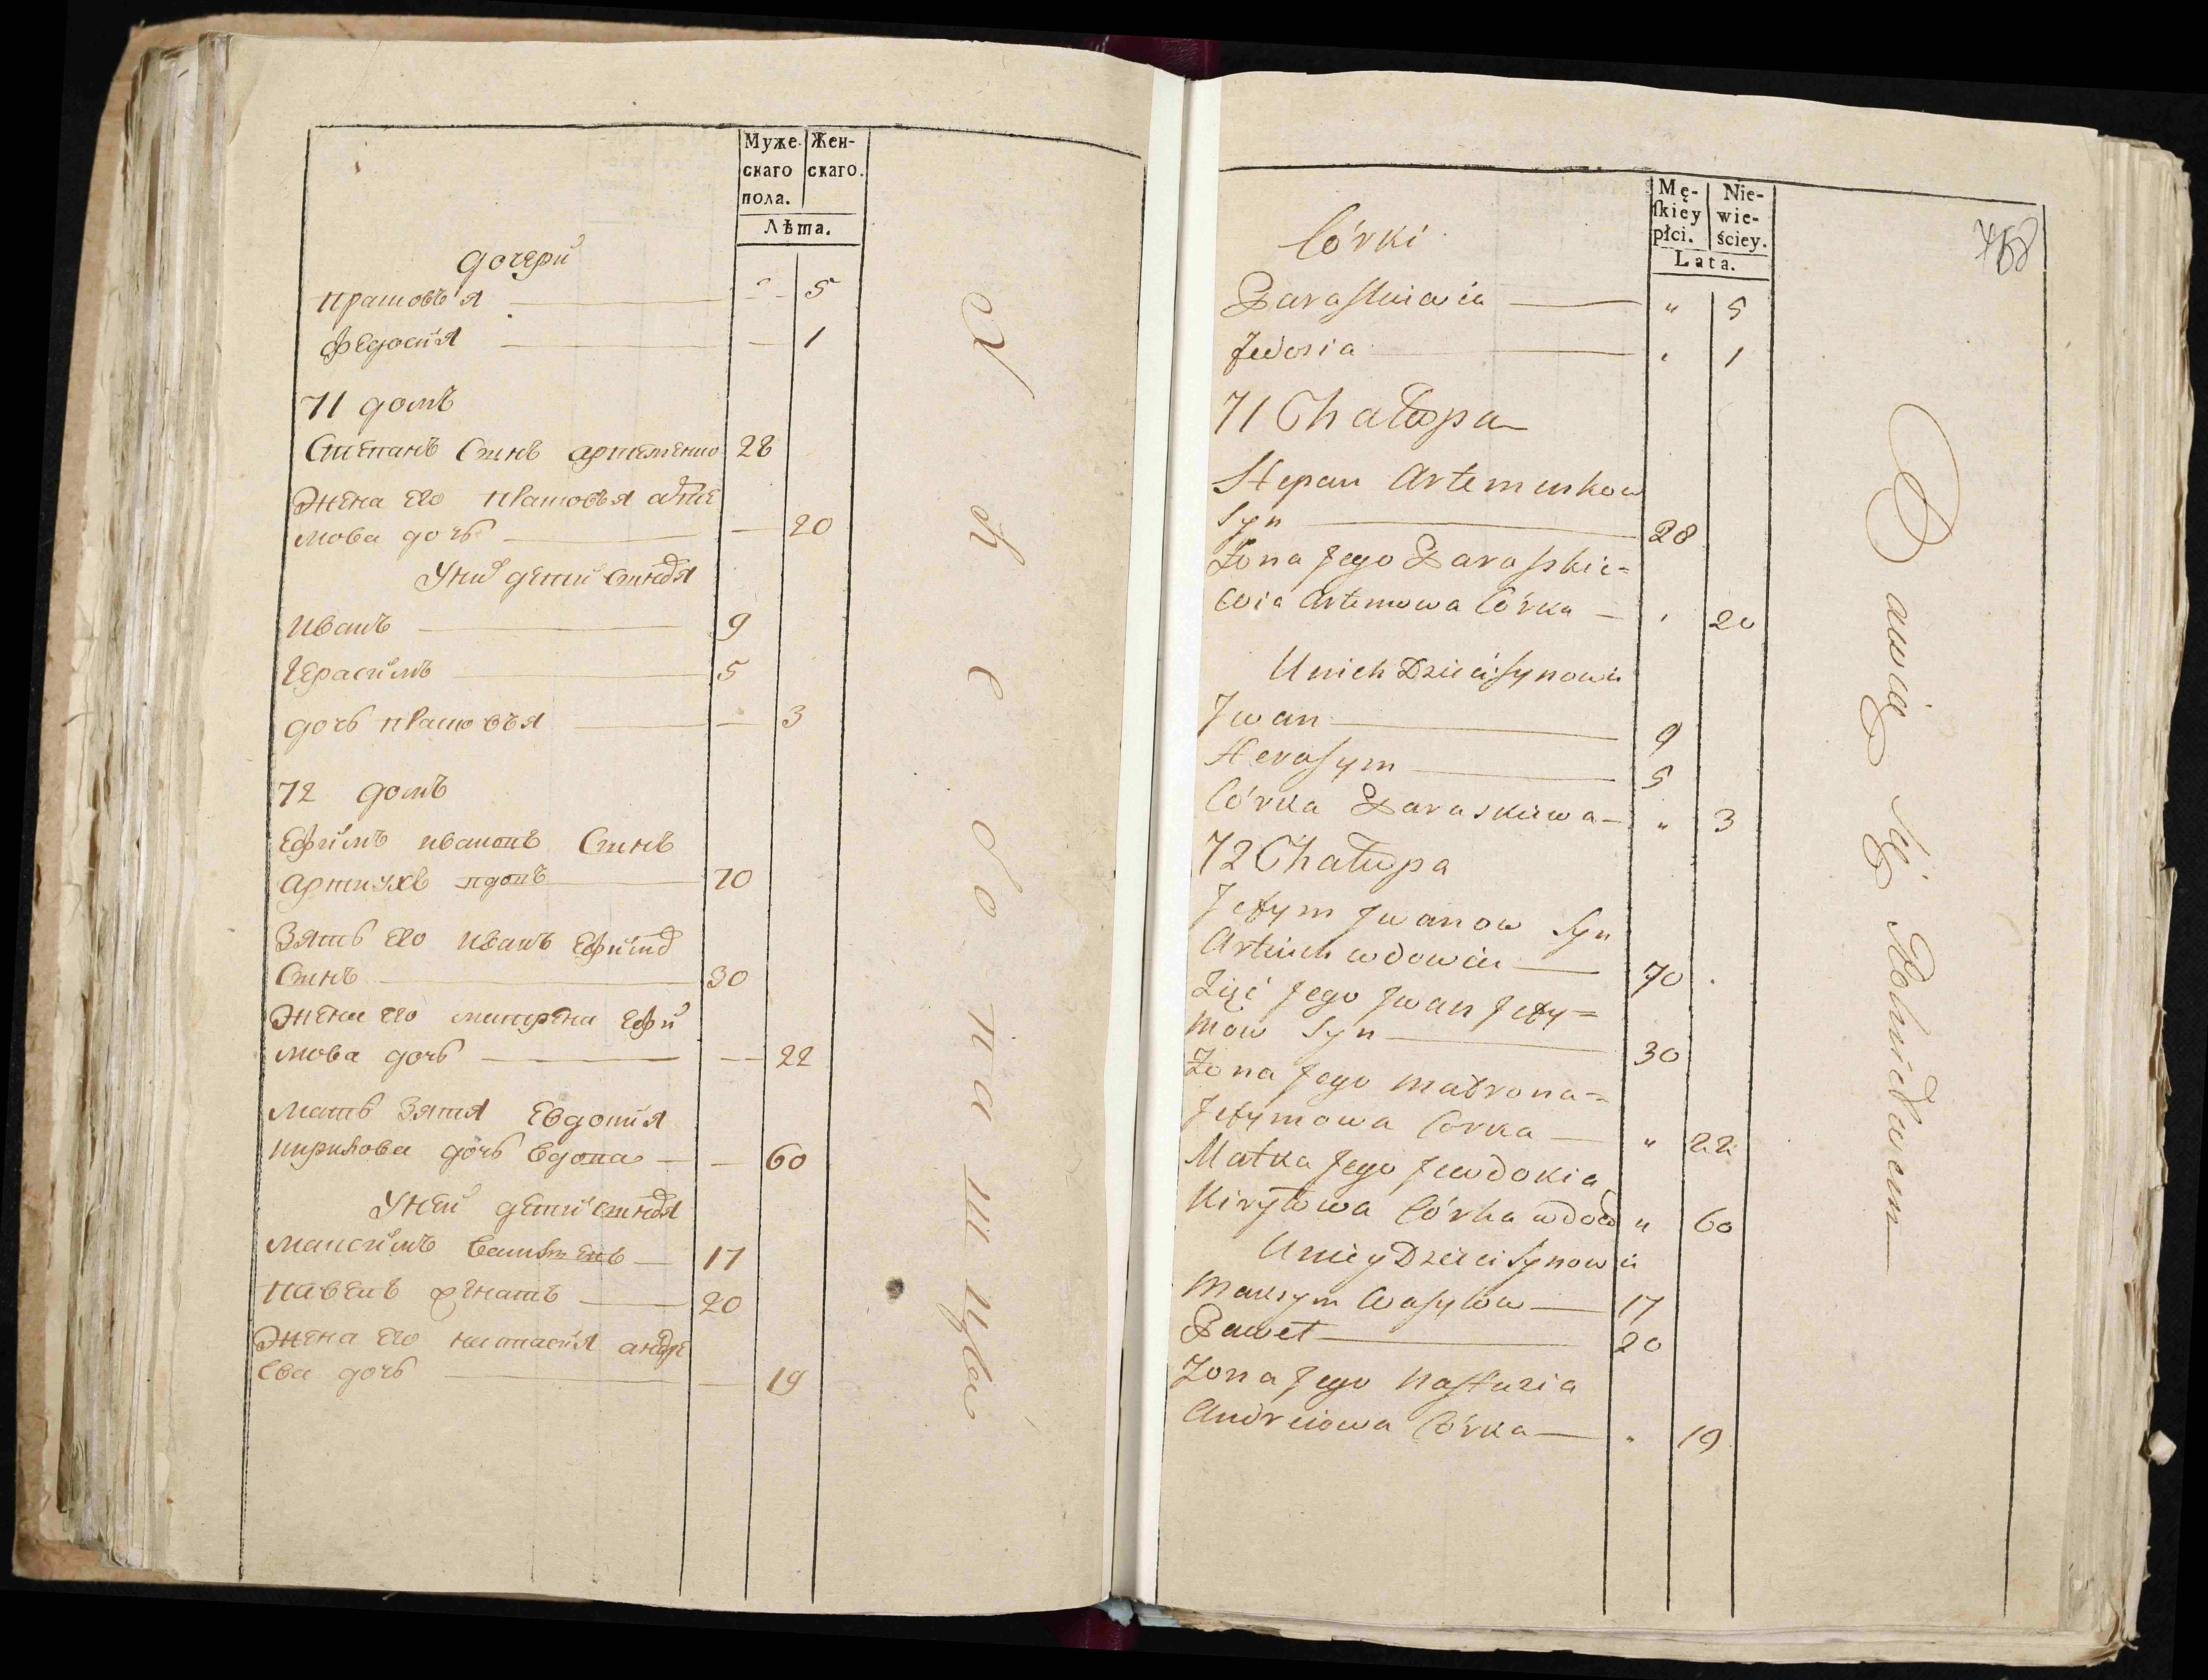 Муже- Жен-
скаго скаго.
пола.
Лѣта.
дочери
прасковья — — 5
федосия — — 1
71 домъ
Степанъ Синъ артеменко 28
жена его прасковья арте
мова дочь — — 20
У них дети синовя
иванъ — 9
герасимъ — 5
дочь прасковья — — 3
72 домъ
Ефимъ ивановъ Синъ
артиухъ вдовъ — 70
Зять его иванъ Ефимов
Синъ — 30
жена его матрена Ефи
мова дочь — — 22
мать зятя Евдокия
кирилова дочь вдова — — 60
У ней дети синовя
максимъ василевъ — 17
павелъ женатъ — 20
жена его настасия андре
ева дочь — — 19
Mę- Nie-
skiey wie-
płci. ściey.
Lata.
768
Córki
Paraskiewia — " 5
Fedosia — " 1
71 Chałupa
Stepan Artemukow
Syn — 28
Żona Jego Paraskie=
wia Artemowa Córka — " 20
U nich Dzieci Synowie
Jwan — 9
Herasym — 5
Córka Paraskiewa — " 3
72 Chałupa
Jefym Jwanow Syn
Artiuch wdowiec — 70
Zięć Jego Jwan Jefy=
mow Syn — 30
Żona Jego Matrona=
Jefymowa Córka — " 22
Matka Jego Jewdokia
Kiryłowa Córka wdowa " 60
U niey Dzieci Synowie
Maksym Wasylow — 17
Paweł — 20
Żona Jego Nastazia
Andreiowa Córka — " 19
Dawią Się Rolnictwem